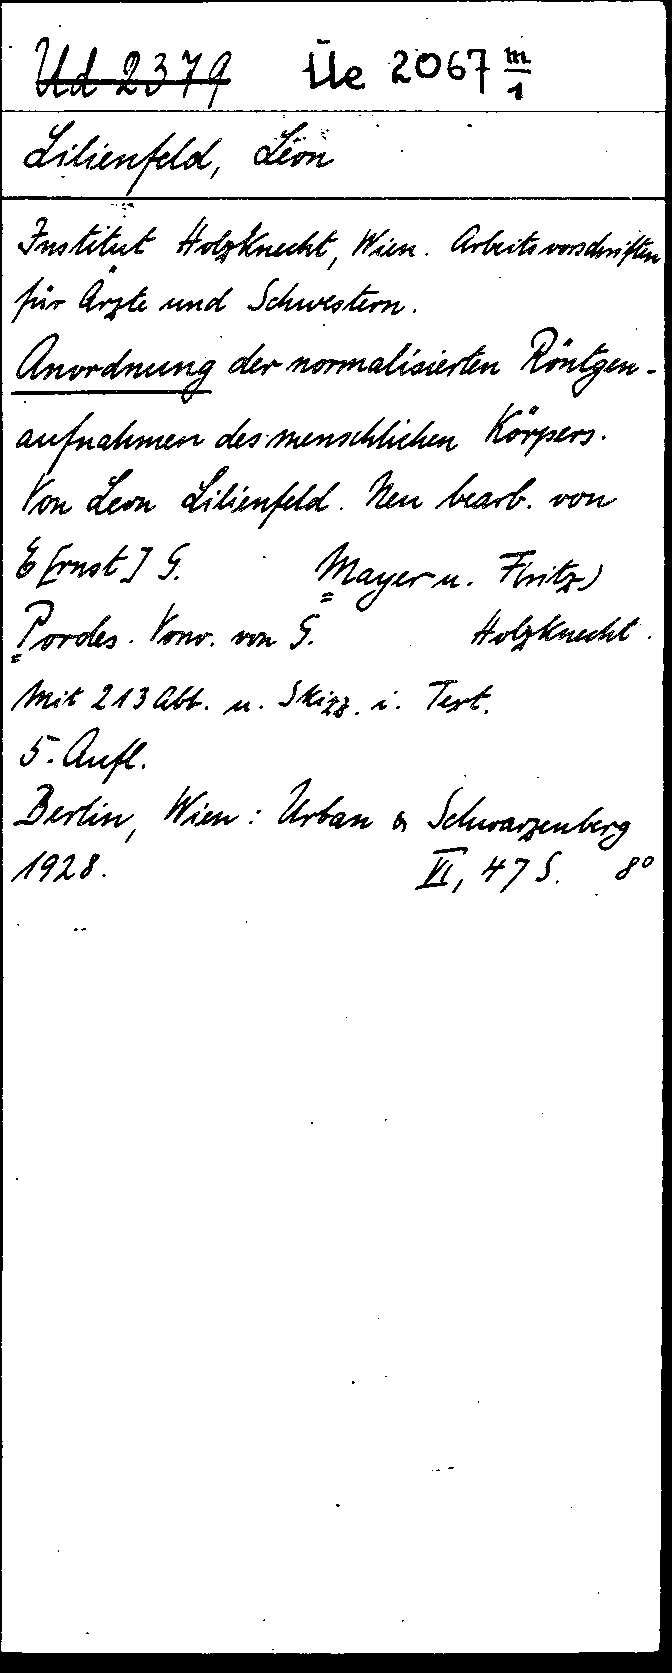 Ud 2379 Üe 2067 m/1
Lilienfeld, Léon
Institut Holzknecht, Wien. Arbeitsvorschriften
für Ärzte und Schwestern.
Anordnung der normalisierten Röntgen-
aufnahmen des menschlichen Körpers.
Von Leon Lilienfeld. Neu bearb. von
E[rnst] G. Mayer u. F(ritz)
Pordes. Vorw. von G. Holzknecht.
Mit 213 Abb. u. Skizz. i. Text.
5. Aufl.
Berlin, Wien: Urban & Schwarzenberg
1928. VI, 47 S. 8°